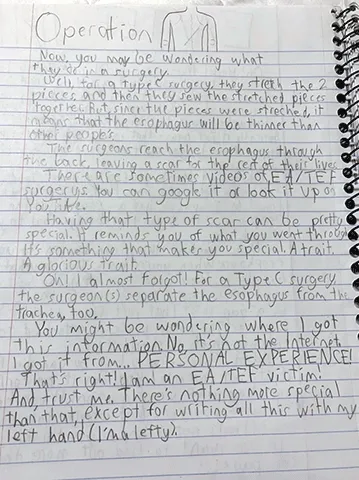 Operation
Now, you may be wondering what
they do in a surgery.
Well, for a Type C surgery, they streth the 2
pieces and then they sew the stretched pieces
together. But, since the pieces were streched, it
means that the esophagus will be thinner than
other people's.
The surgeons reach the esophagus through
the back, leaving a scar for the rest of their lives.
There are sometimes videos of EA/TEF
surgerys. You can google it or look it up on
YouTube.
Having that type of scar can be pretty
special. It reminds you of what you went through.
It's something that makes you special. A trait.
A glorious trait.
Oh! I almost forgot! For a Type C surgery
the surgeon(s) separate the esophagus from the
trachea, too.
You might be wondering where I got
this information. No, it's not the Internet. I
got it from... PERSONAL EXPERIENCE!
That's right! I am an EA/TEF victim!
And trust me. There's nothing more special
than that, except for writing all this with my
left hand (I'm a lefty).